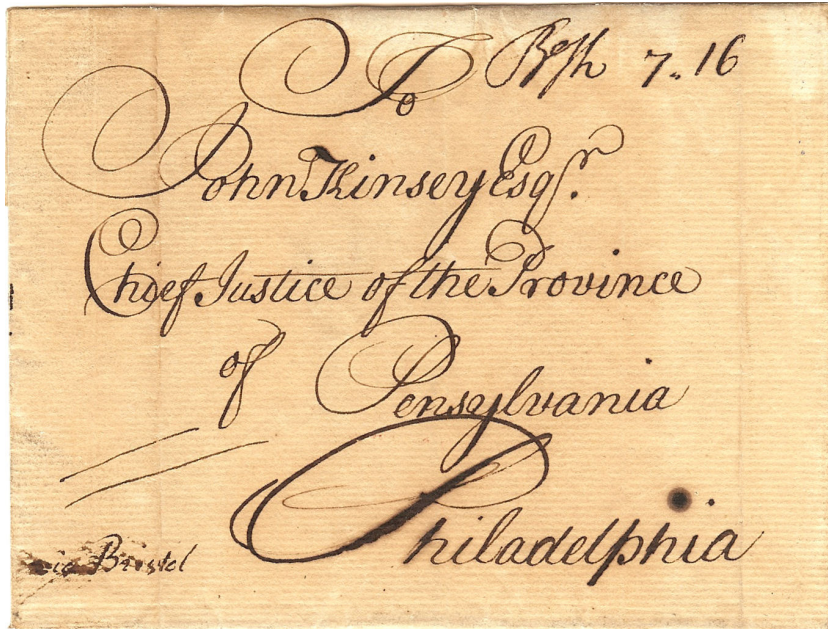 To
7. 16
John Kinsey Esqr.
Chief Justice of the Province
of Pensylvania
Philadelphia
via Bristol